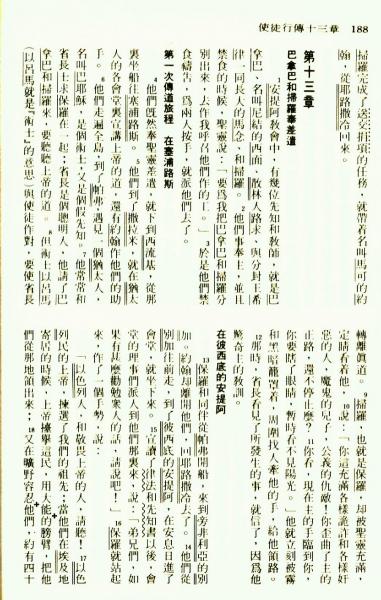 使徒行傳十三章 188
掃羅完成了送交捐項的任務，就帶着名叫馬可的約
翰，從耶路撒冷回來。
第十三章
巴拿巴和掃羅奉差遣
1安提阿教會中，有幾位先知和教師，就是巴
拿巴、名叫尼結的西面、散林人路求、與分封王希
律一同長大的馬念、和掃羅。2他們事奉主，並且
禁食的時候，聖靈說：「要爲我把巴拿巴和掃羅分
別出來，去作我呼召他們作的工。」3於是他們禁
食禱告，爲兩人按手，就派他們去了。
第一次傳道旅程 在塞浦路斯
4他們旣然奉聖靈差遣，就下到西流基，從那
裏坐船往塞浦路斯。5他們到了撒拉米，就在猶太
人的各會堂裏宣講上帝的道，還有約翰作他們的助
手。6他們走遍全島，到了帕弗，遇見一個猶太人，
名叫巴耶穌，是個術士，又是個假先知。7他常常和
省長士求保羅在一起；省長是個聰明人，他請了巴
拿巴和掃羅來，要聽聽上帝的道。8但術士以呂馬
（以呂馬就是『術士』的意思）與使徒作對，要使省長
轉離眞道。9掃羅，也就是保羅，却被聖靈充滿，
定睛看着他，10說：「你這充滿各樣詭詐和各樣奸
惡的人，魔鬼的兒子，公義的仇敵！你歪曲了主的
正路，還不停止麽？11你看，現在主的手臨到你，
你要瞎了眼睛，暫時看不見陽光。」他就立刻被霧
和黑暗籠罩着，周圍找人牽他的手，給他領路。
12那時，省長看見了所發生的事，就信了，因爲他
驚奇主的教訓。
在彼西底的安提阿
13保羅和同伴從帕弗開船，來到旁非利亞的別
加。約翰却離開他們，回耶路撒冷去了。14他們從
別加往前走，到了彼西底的安提阿，在安息日進了
會堂，就坐下來。15宣讀了律法和先知書以後，會
堂的理事們派人到他們那裏來，說：「弟兄們，如
果有甚麽勸勉衆人的話，請說吧！」16保羅就站起
來，作了一個手勢，說：
「以色列人，和敬畏上帝的人，請聽！17以色
列民的上帝，揀選了我們的祖先；當他們在埃及地
寄居的時候，上帝擡舉這民，用大能的膀臂，把他
們從那地領出來；18又在曠野容忍他們，約有四十